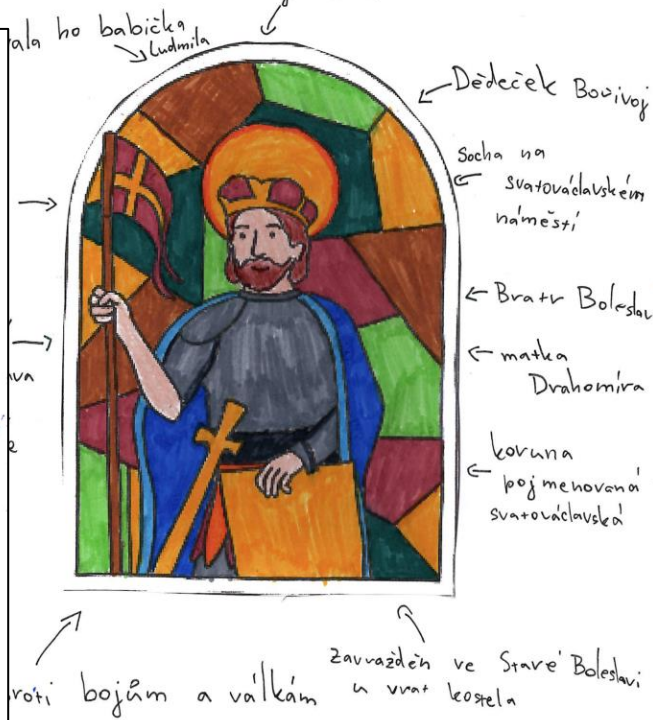 ho babička
Ludmila
Dědeček Bořivoj
Socha na
svatováclavském
náměstí
Bratr Boleslav
matka
Drahomíra
koruna
pojmenovaná
svatováclavská
Zavražděn ve Staré Boleslavi
u vrat kostela
bojům a válkám